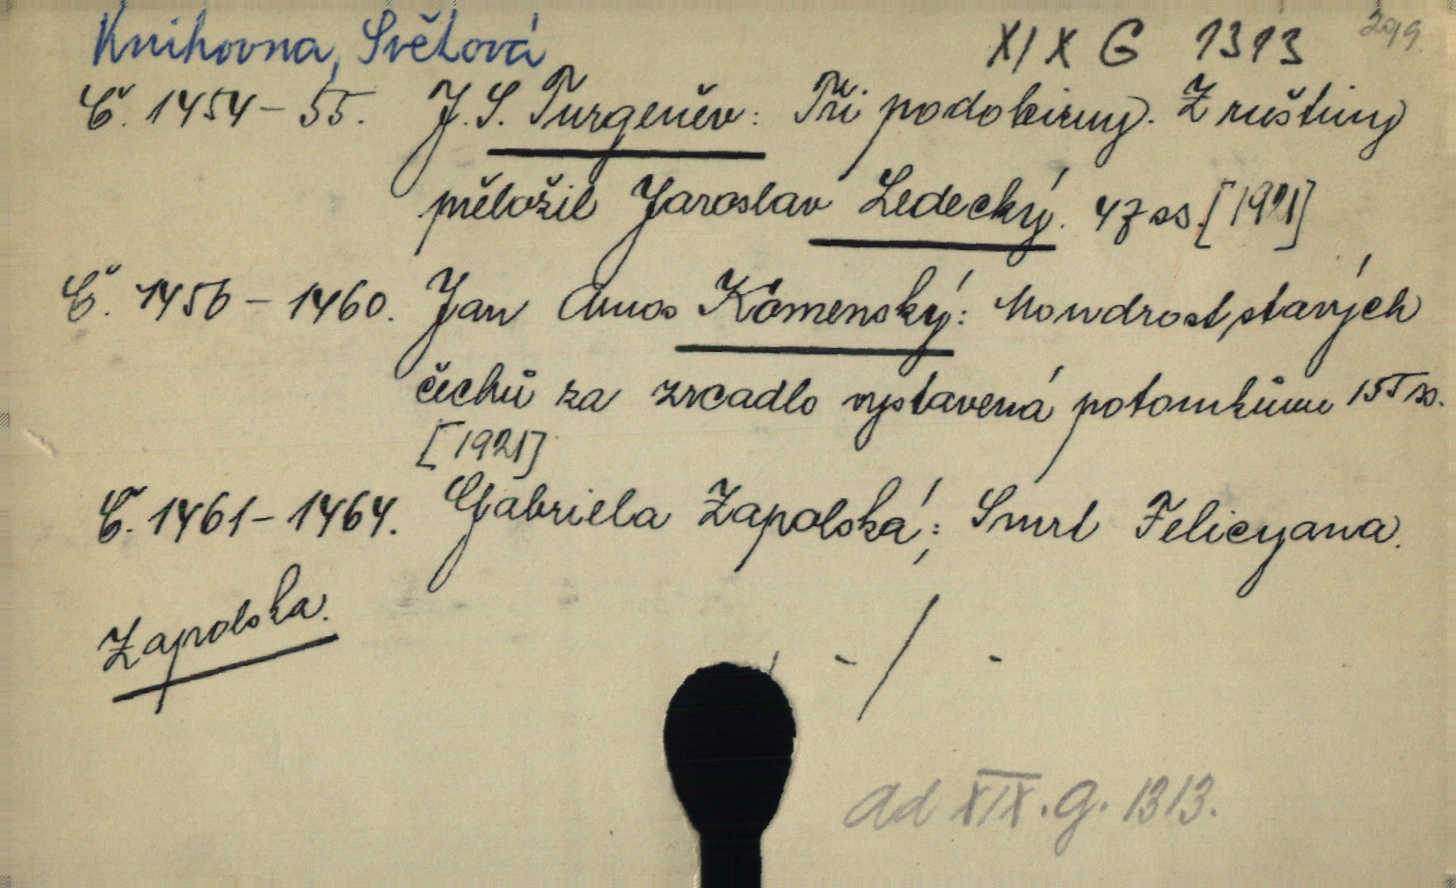 Knihovna, Světová XIX G 1313 299.
Č. 1454 – 55. J. S. Turgeněv: Tři podobizny. Z ruštiny
přeložil Jaroslav Ledecký. 47 ss. [1921]
Č. 1456 – 1460. Jan Amos Komenský: Moudrost starých
čechů za zrcadlo vystavená potomkům 155 ss.
[1921]
Č. 1461 – 1464. Gabriela Zapolská; Smrt Felicyana.
Zapolska.
-/-
ad XIX. g. 1313.